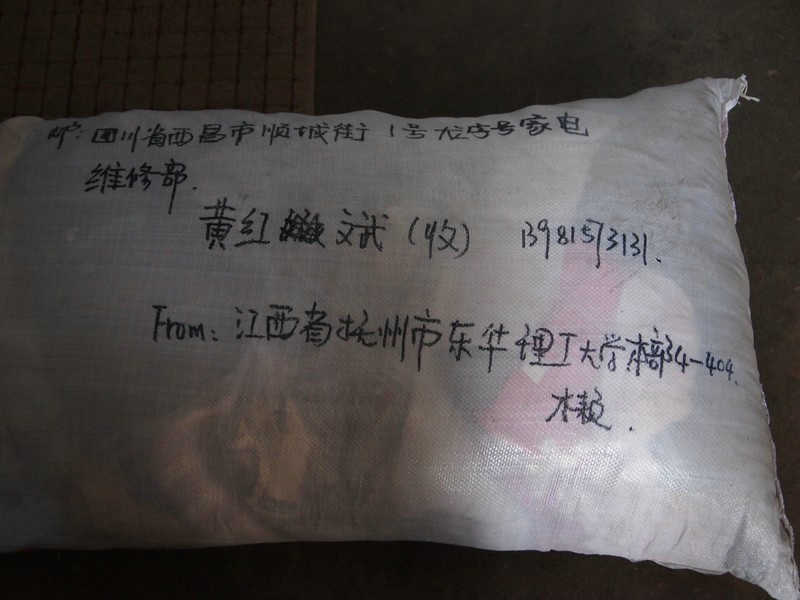 四川省西昌市顺城街1号龙字号家电
维修部.
黄红斌(收) 13981573131.
From: 江西省抚州市东华理工大学本部34-404.
木颖.